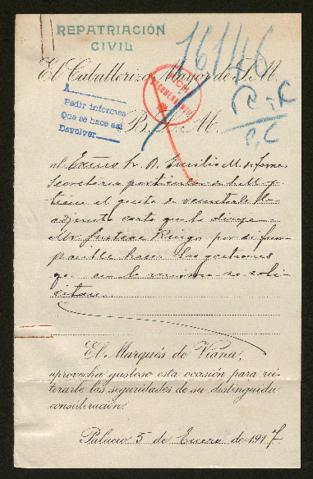 REPATRIACIÓN
CIVIL
16146
El Caballerizo Mayor de S. M.
A
Pedir informes
Que se hace así
Devolver
B. L. M.
al Excmo Sr. D. Emilio M. de Torres
Secretario particular de S. M. y
tiene el gusto de remitirle la
adjunta carta que le dirige
Mr. Ruigo, por si fuera
posible hacer las gestiones
que en la misma se soli-
citan
El Marqués de Viana,
aprovecha gustoso esta ocasión para rei-
terarle las seguridades de su distinguida
consideración.
Palacio 5 de Enero de 1917.